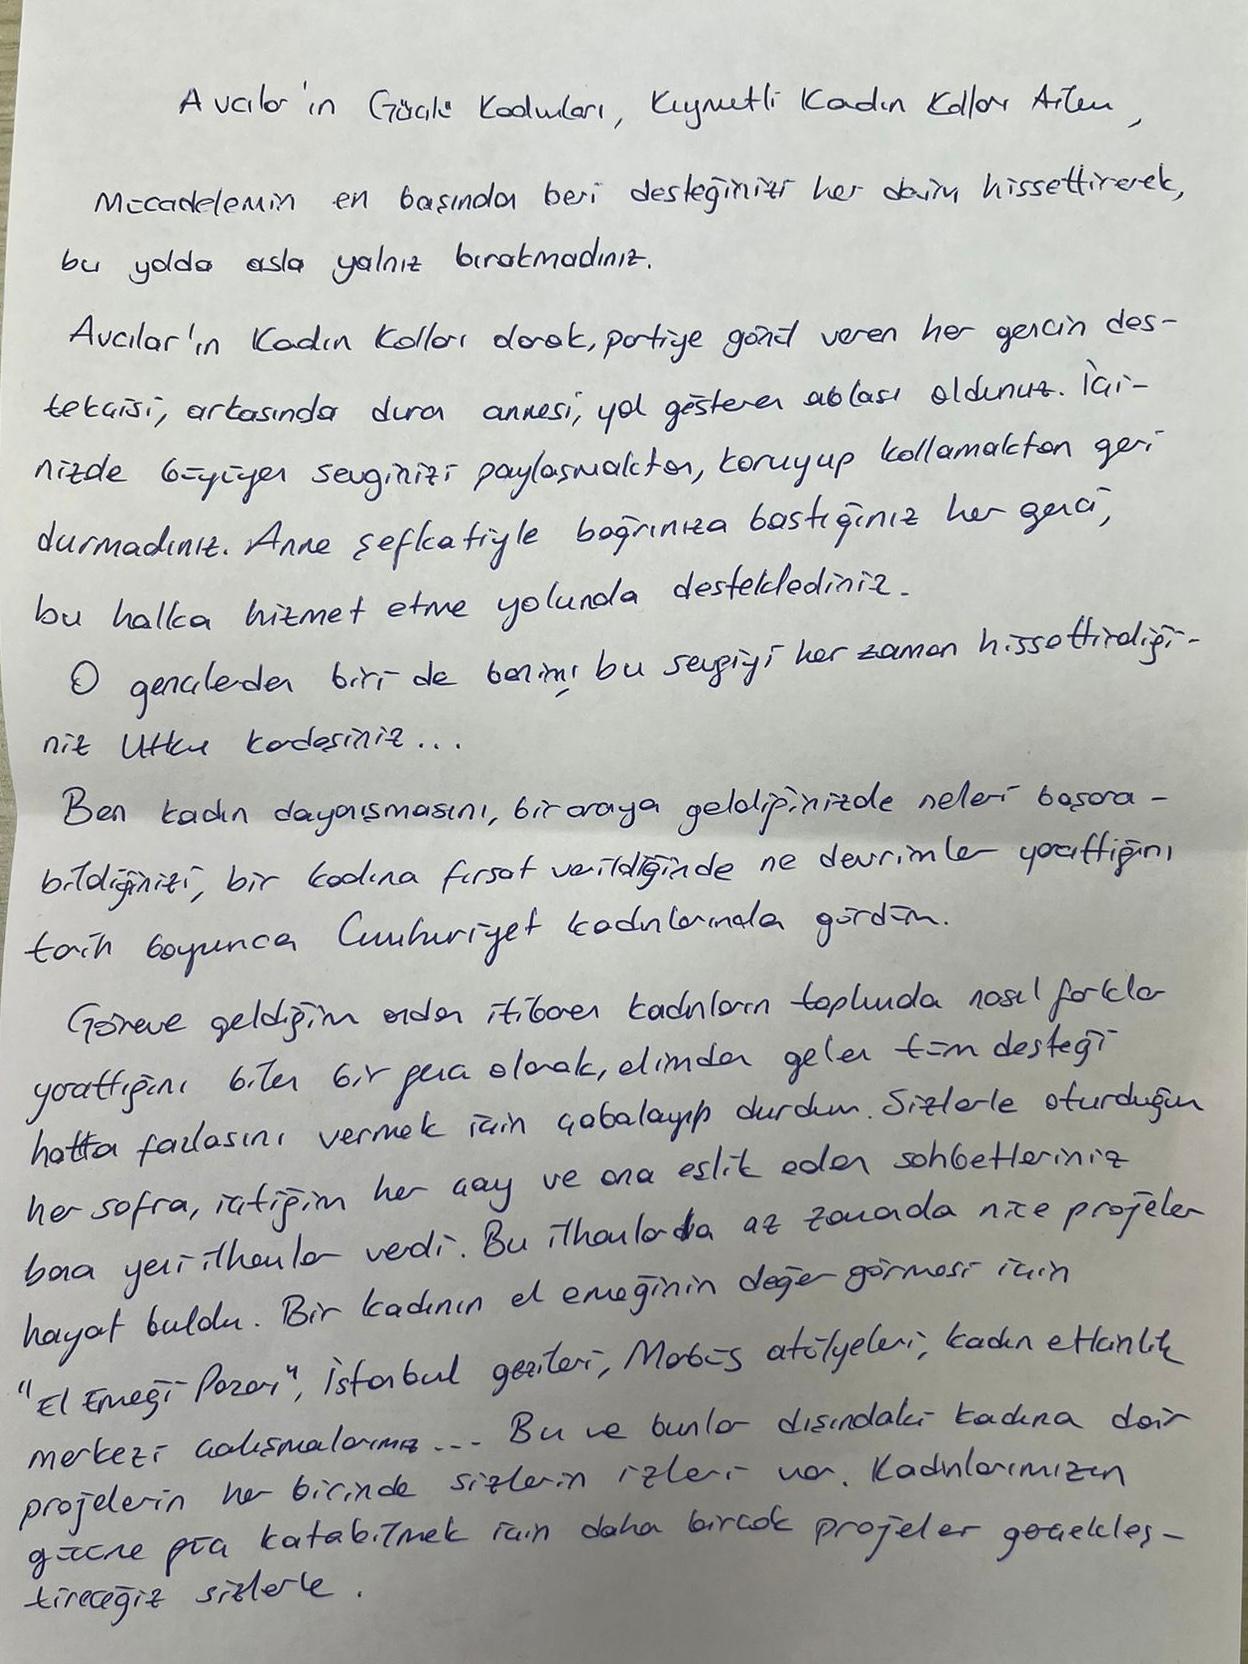 Avcılar'ın Güçlü Kadınları, Kıymetli Kadın Kolları Ailem,
Mücadelemin en başından beri desteğinizi her daim hissettirerek,
bu yolda asla yalnız bırakmadınız.
Avcılar'ın Kadın Kolları olarak, partiye gönül veren her gencin des-
tekçisi, arkasında duran annesi, yol gösteren ablası oldunuz. İçi-
nizde büyüyen sevginizi paylaşmaktan, koruyup kollamaktan geri
durmadınız. Anne şefkatiyle bağrınıza bastığınız her genci,
bu halka hizmet etme yolunda desteklediniz.
O gençlerden biri de benim; bu sevgiyi her zaman hissettirdiği-
niz Utku kardeşiniz...
Ben kadın dayanışmasını, bir araya geldiğinizde neleri başara-
bildiğinizi, bir kadına fırsat verildiğinde ne devrimler yarattığını
tarih boyunca Cumhuriyet kadınlarında gördüm.
Göreve geldiğim andan itibaren kadınların toplumda nasıl farklar
yarattığını bilen bir genç olarak, elimden gelen tüm desteği
hatta fazlasını vermek için çabalayıp durdum. Sizlerle oturduğum
her sofra, içtiğim her çay ve ona eşlik eden sohbetleriniz
bana yeni ilhamlar verdi. Bu ilhamlarla az zamanda nice projeler
hayat buldu. Bir kadının el emeğinin değer görmesi için
"El Emeği Pazarı", İstanbul gezileri, Mabüş atölyeleri, kadın etkinlik
merkezi çalışmalarımız... Bu ve bunlar dışındaki kadına dair
projelerin her birinde sizlerin izleri var. Kadınlarımızın
gücüne güç katabilmek için daha birçok projeler gerçekleş-
tireceğiz sizlerle.